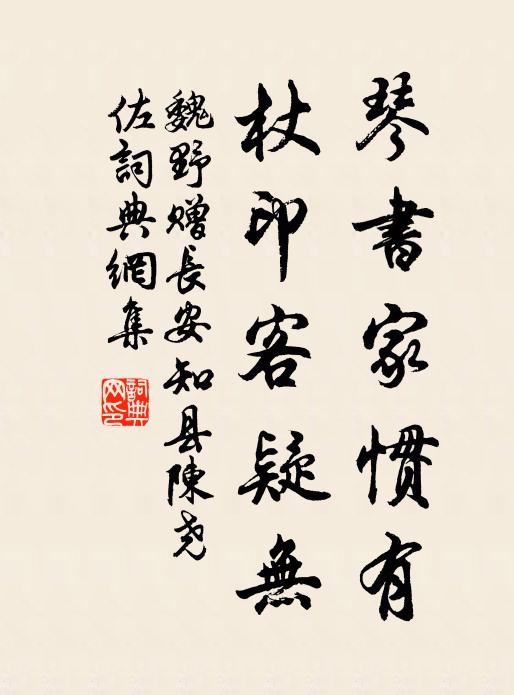 琴書家慣有
杖印客疑無
魏野赠長安知县陳尧
佐詞典網集
詞典
网印